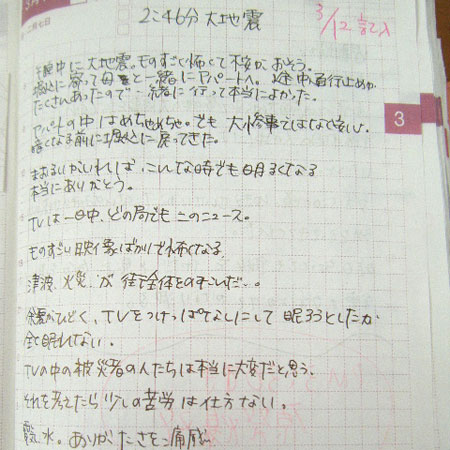 2:46分 大地震
3/12 記入
中に大地震。ものすごく怖くて不安がおそう。
に寄って母と一緒にアパートへ。途中通行止めが
たくさんあったので一緒に行って本当によかった。
アパートの中はめちゃめちゃ。でも大惨事ではなく
暗くなる前に戻ってきた。
3
がいれば、こんな時でも明るくなる
本当にありがとう。
TVは一日中、どの局でもこのニュース。
ものすごい映像ばかりで怖くなる
津波、火災、が街全体をのみこんだ。
余震がひどく、TVをつけっぱなしにして眠ろうとしたが
全く眠れない。
TVの中の被災者の人たちは本当に大変だと思う。
それを考えたら少しの苦労は仕方ない。
水。ありがたさを痛感